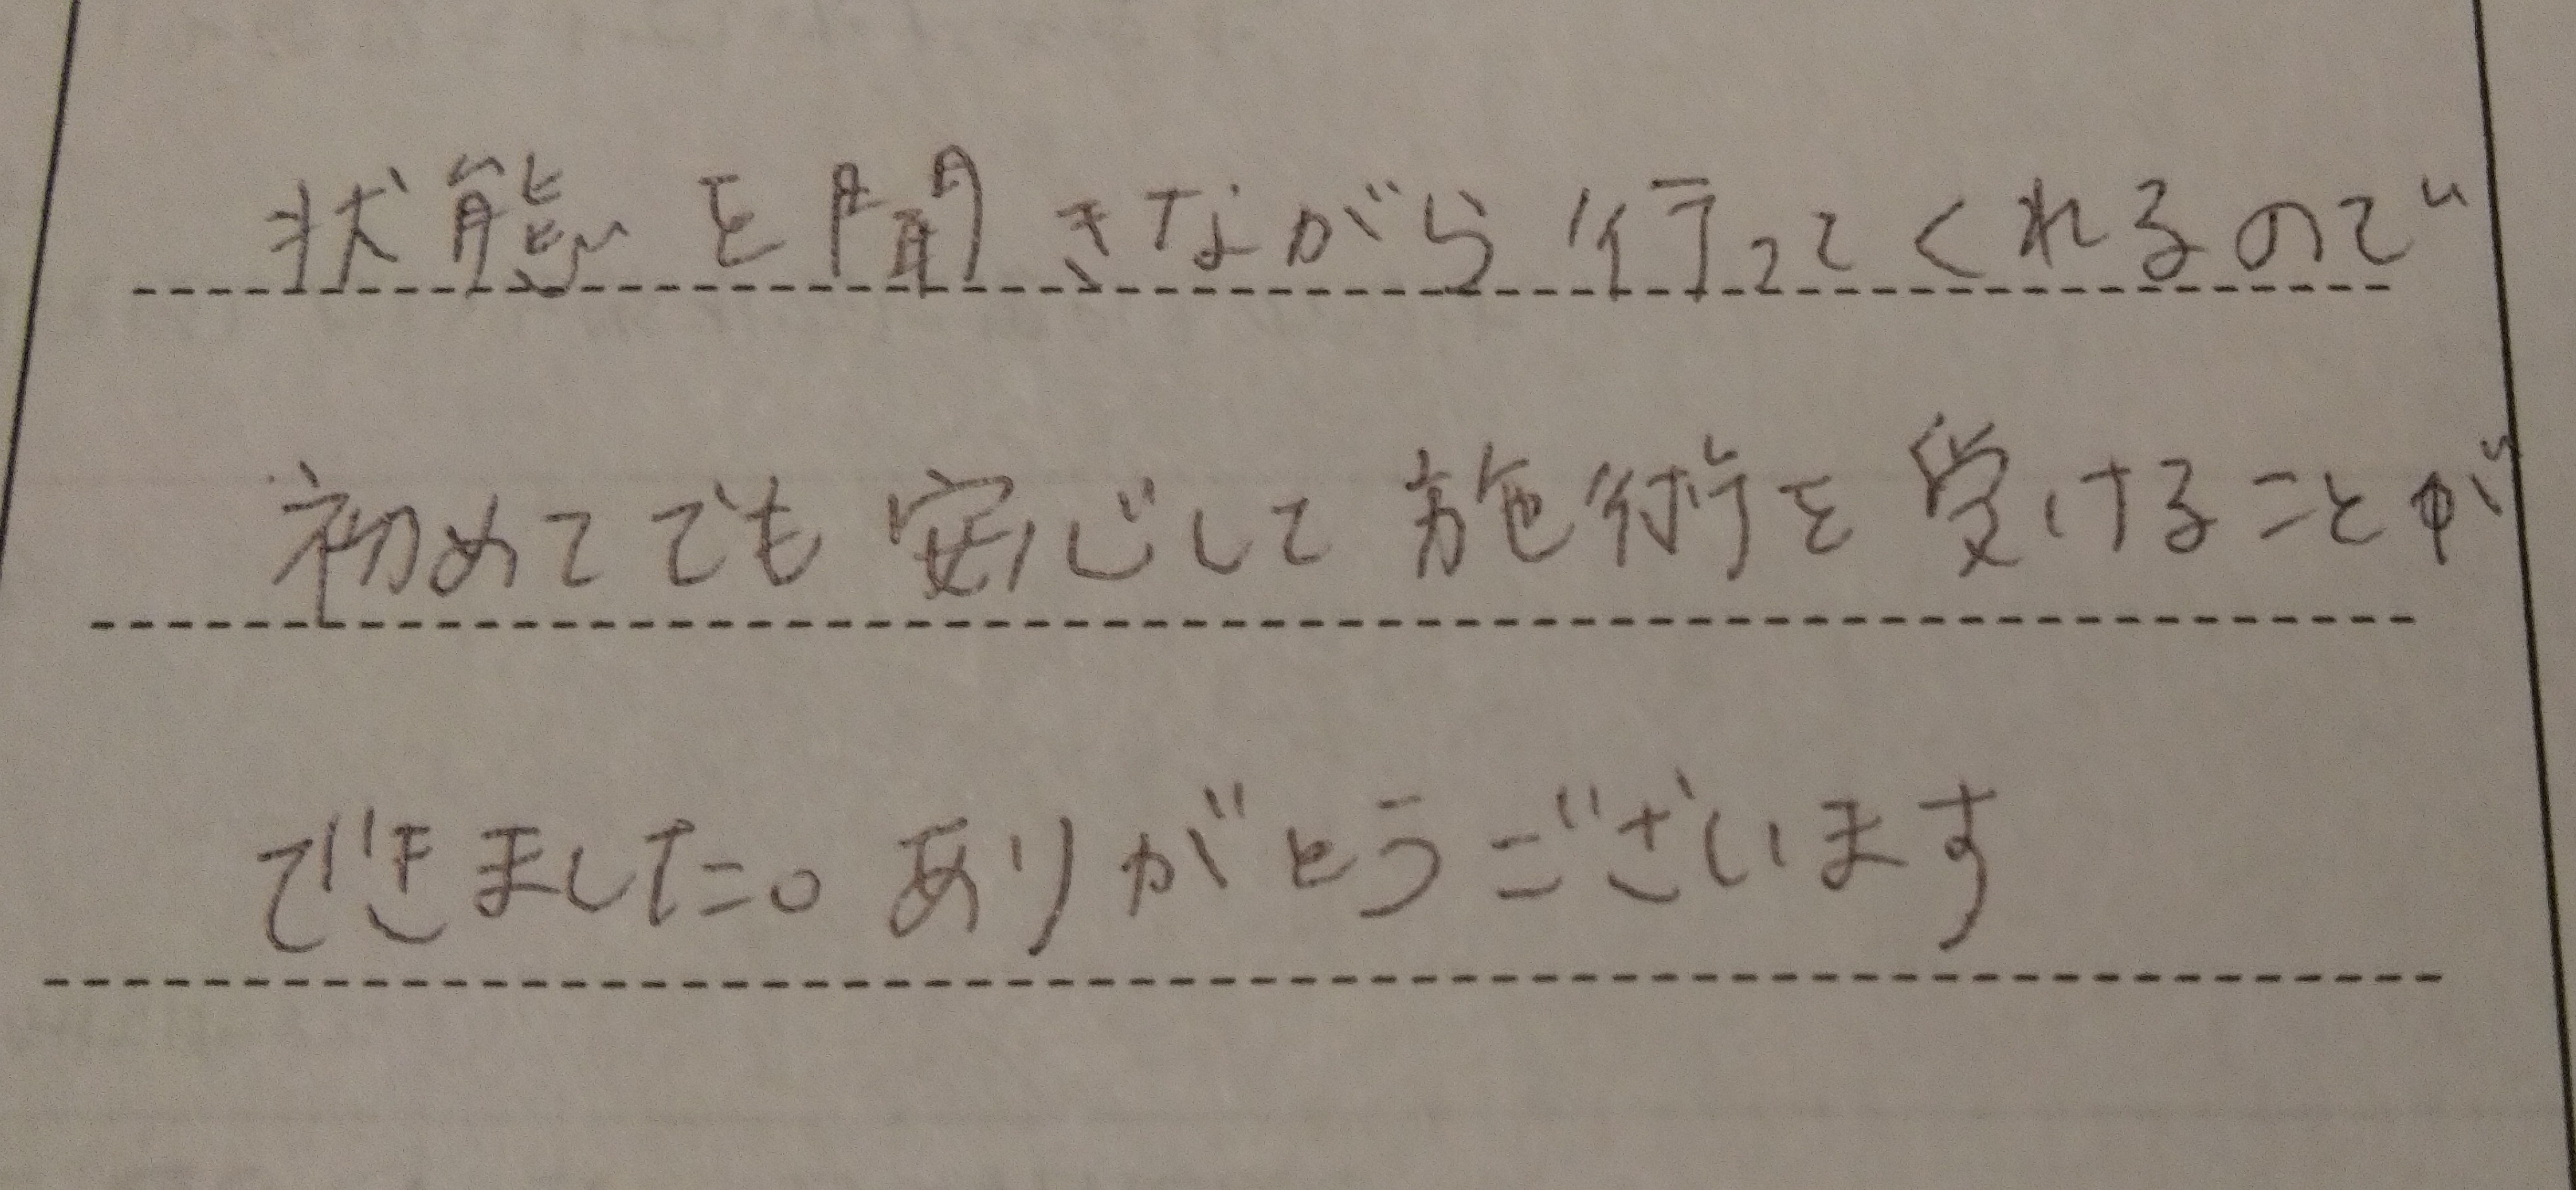 状態を聞きながら行ってくれるので
初めてでも安心して施術を受けることが
できました。ありがとうございます